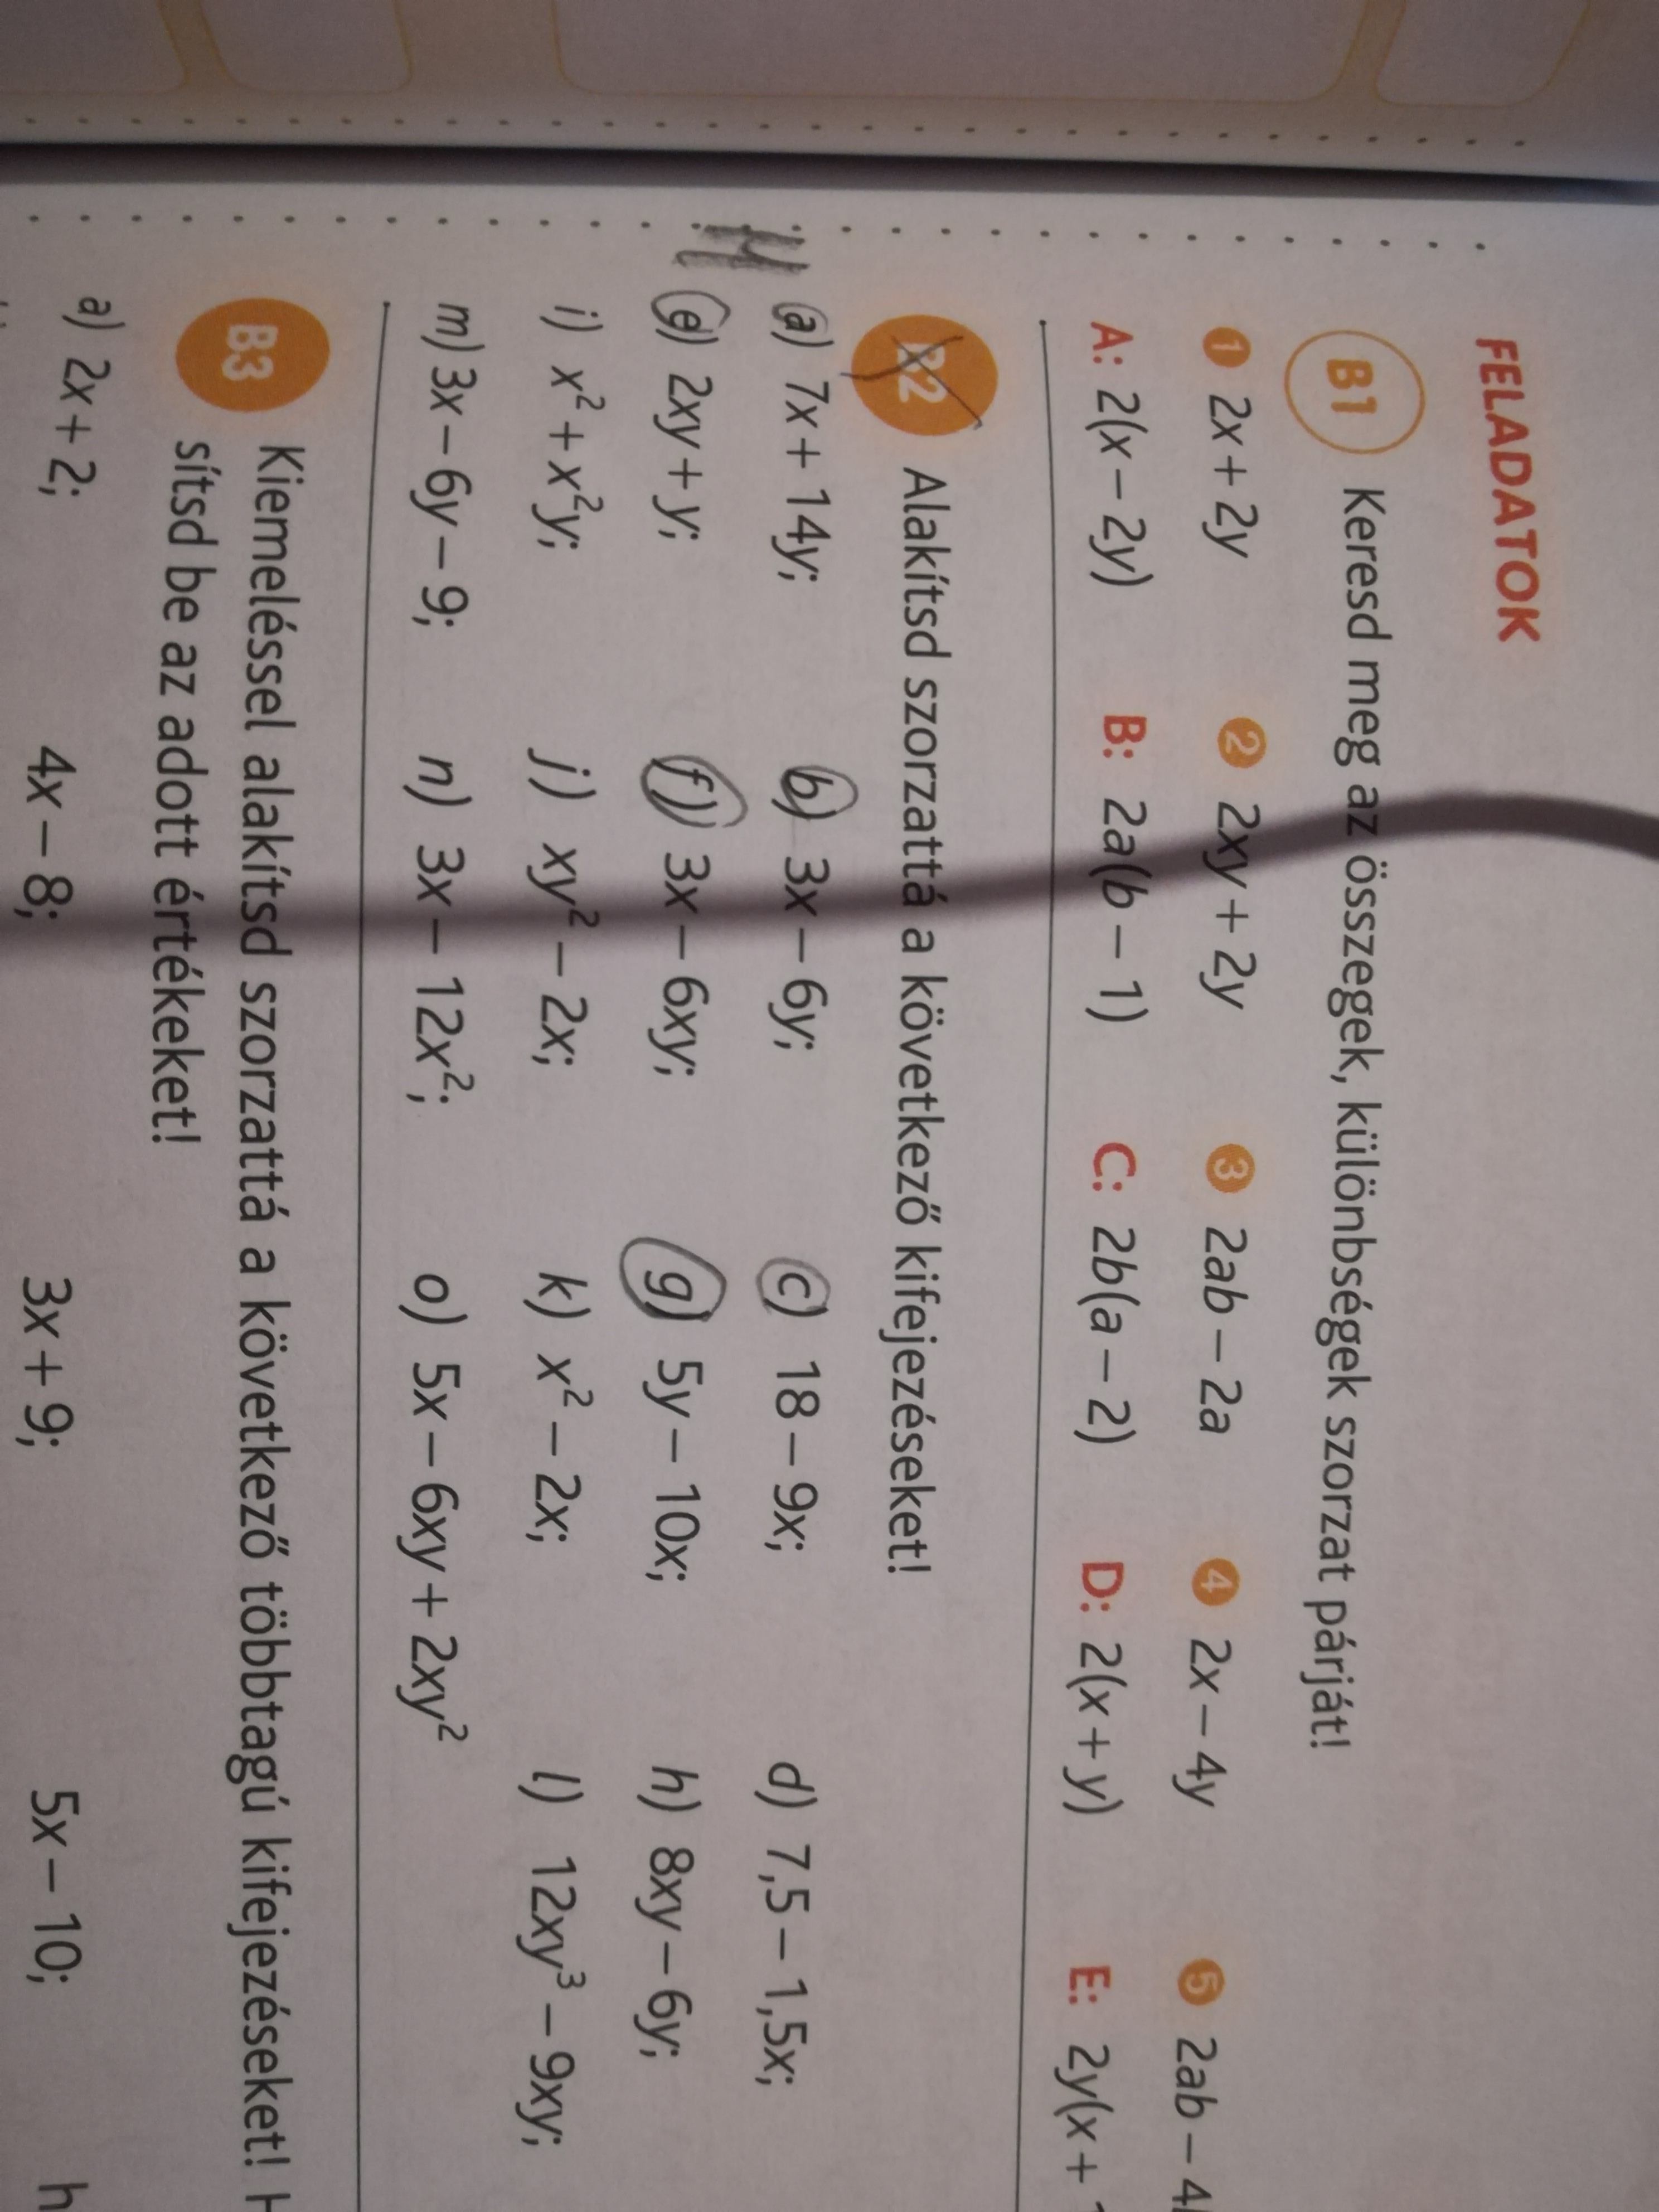 FELADATOK
B1 Keresd meg az összegek, különbségek szorzat párját!
1 2x + 2y 2 2xy + 2y 3 2ab – 2a 4 2x – 4y 5 2ab – 4
A: 2(x – 2y) B: 2a(b – 1) C: 2b(a – 2) D: 2(x + y) E: 2y(x +
B2 Alakítsd szorzattá a következő kifejezéseket!
a) 7x + 14y; b) 3x – 6y; c) 18 – 9x; d) 7,5 – 1,5x;
e) 2xy + y; f) 3x – 6xy; g) 5y – 10x; h) 8xy – 6y;
i) x² + x²y; j) xy² – 2x; k) x² – 2x; l) 12xy³ – 9xy;
m) 3x – 6y – 9; n) 3x – 12x²; o) 5x – 6xy + 2xy²
B3 Kiemeléssel alakítsd szorzattá a következő többtagú kifejezéseket! H
sítsd be az adott értékeket!
a) 2x + 2; 4x – 8; 3x + 9; 5x – 10; h